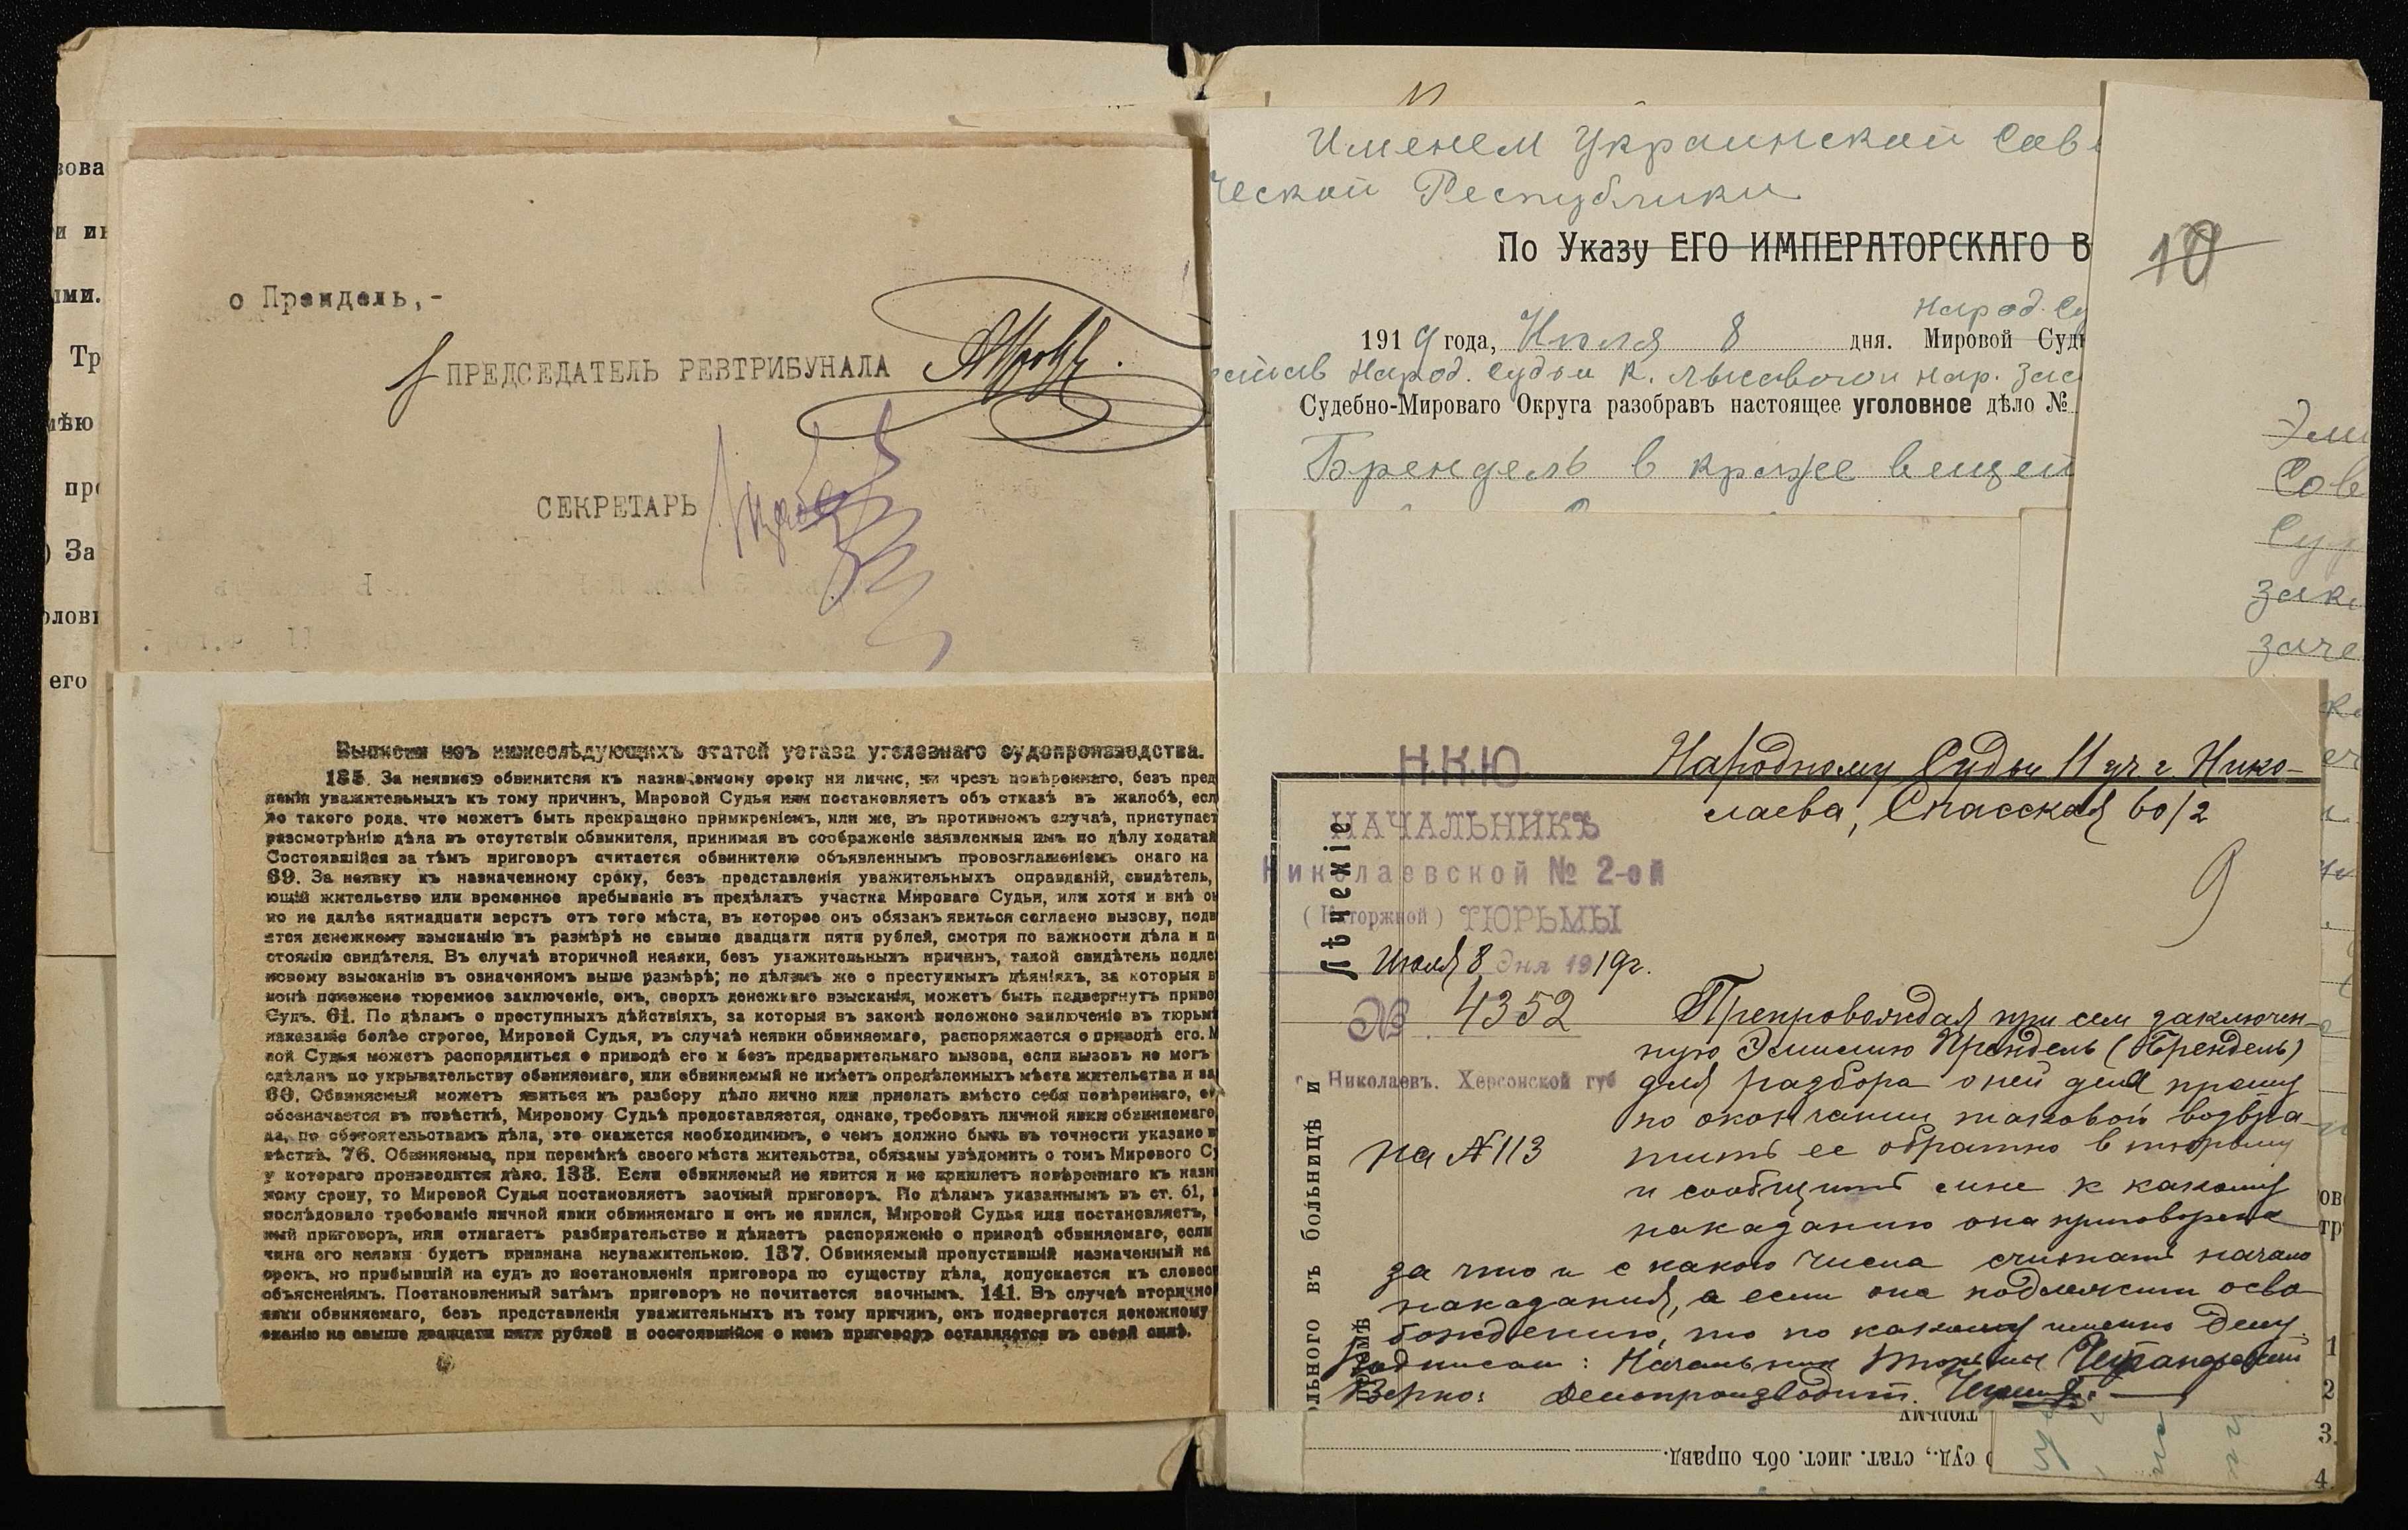 зова
и ин
ими.
Тр
мѣю
пре
) За
ловн
его
о Прендель,-
ПРЕДСЕДАТЕЛЬ РЕВТРИБУНАЛА
СЕКРЕТАРЬ
Выписки изъ нижеслѣдующихъ статей устава уголовнаго судопроизводства.
135. За неявкою обвинителя къ назначенному сроку ни лично, ни чрезъ повѣреннаго, безъ пред
ленія уважительныхъ къ тому причинъ, Мировой Судья или постановляетъ объ отказѣ въ жалобѣ, есл
ло такого рода, что можетъ быть прекращено примиреніемъ, или же, въ противномъ случаѣ, приступает
разсмотрѣнію дѣла въ отсутствіи обвинителя, принимая въ соображеніе заявленныя имъ по дѣлу ходатай
Состоявшійся за тѣмъ приговоръ считается обвинителю объявленнымъ провозглашеніемъ онаго на
69. За неявку къ назначенному сроку, безъ представленія уважительныхъ оправданій, свидѣтель,
ющій жительство или временное пребываніе въ предѣлахъ участка Мирового Судьи, или хотя и внѣ он
но не далѣе пятнадцати верстъ отъ того мѣста, въ которое онъ обязанъ явиться согласно вызову, подв
ется денежному взысканію въ размѣрѣ не свыше двадцати пяти рублей, смотря по важности дѣла и п
стоянію свидѣтеля. Въ случаѣ вторичной неявки, безъ уважительныхъ причинъ, такой свидѣтель подле
новому взысканію въ означенномъ выше размѣрѣ; по дѣламъ же о преступныхъ дѣяніяхъ, за которыя в
конѣ положено тюремное заключеніе, онъ, сверхъ денежнаго взысканія, можетъ быть подвергнутъ приво
Судъ. 61. По дѣламъ о преступныхъ дѣйствіяхъ, за которыя въ законѣ положено заключеніе въ тюрьм
наказаніе болѣе строгое, Мировой Судья, въ случаѣ неявки обвиняемаго, распоряжается о приводѣ его. М
вой Судья можетъ распорядиться о приводѣ его и безъ предварительнаго вызова, если вызовъ не могъ
сдѣланъ по укрывательству обвиняемаго, или обвиняемый не имѣетъ опредѣленныхъ мѣста жительства и за
60. Обвиняемый можетъ явиться къ разбору дѣло лично или прислать вмѣсто себя повѣреннаго, о
обозначается въ повѣсткѣ, Мировому Судьѣ предоставляется, однако, требовать личной явки обвиняемаго,
да, по обстоятельствамъ дѣла, это окажется необходимымъ, о чемъ должно быть въ точности указано в
вѣсткѣ. 76. Обвиняемые, при перемѣнѣ своего мѣста жительства, обязаны увѣдомить о томъ Мирового С
у котораго производится дѣло. 133. Если обвиняемый не явится и не пришлетъ повѣреннаго къ назн
ному сроку, то Мировой Судья постановляетъ заочный приговоръ. По дѣламъ указаннымъ въ ст. 61,
послѣдовало требованіе личной явки обвиняемаго и онъ не явился, Мировой Судья или постановляетъ,
ный приговоръ, или отлагаетъ разбирательство и дѣлаетъ распоряженіе о приводѣ обвиняемаго, если
чина его неявки будетъ признана неуважительною. 137. Обвиняемый пропустившій назначенный на
срокъ, но прибывшій на судъ до постановленія приговора по существу дѣла, допускается къ словес
объясненіямъ. Постановленный затѣмъ приговоръ не почитается заочнымъ. 141. Въ случаѣ вторично
явки обвиняемаго, безъ представленія уважительныхъ къ тому причинъ, онъ подвергается денежному
сканію не свыше двадцати пяти рублей и состоявшійся о немъ приговоръ оставляется въ своей силѣ.
Именем Украинской Сове
ческой Республики
По Указу ЕГО ИМПЕРАТОРСКАГО В
10
народ. Су
1919 года, Июля 8 дня. Мировой Судь
Народ. Судьи К. Лысавогои нар. зас
Судебно-Мироваго Округа разобравъ настоящее уголовное дѣло №
Брендель в краже вещей
Эми
Сов
Суд
закл
заче
Н.К.Ю
НАЧАЛЬНИКЪ
Николаевской № 2-ой
(Каторжной) ТЮРЬМЫ
Июля 8 дня 1919г.
№ 4352
г. Николаевъ. Херсонской губ
на №113
Народному Судьи 11 уч г. Нико-
лаева, Спасская 60/2
9
Препровождая при сем заключен-
ную Эмилию Прендель (Брендель)
для разбора о ней дела прошу
по окончании таковой возвра-
тить ее обратно в тюрьму
и сообщить мне к какому
наказанию она приговорена
за что и с какого числа считать начало
наказания, а если она подлежит осво-
бождению, то по какому именно делу.
Подписал: Начальник Тюрьмы
Верно: Делопроизводит.
Лѣченіе
льного въ больницѣ и
ов
тр
1
2
3.
4
тюрьму
суд., стат. лист. объ оправд.